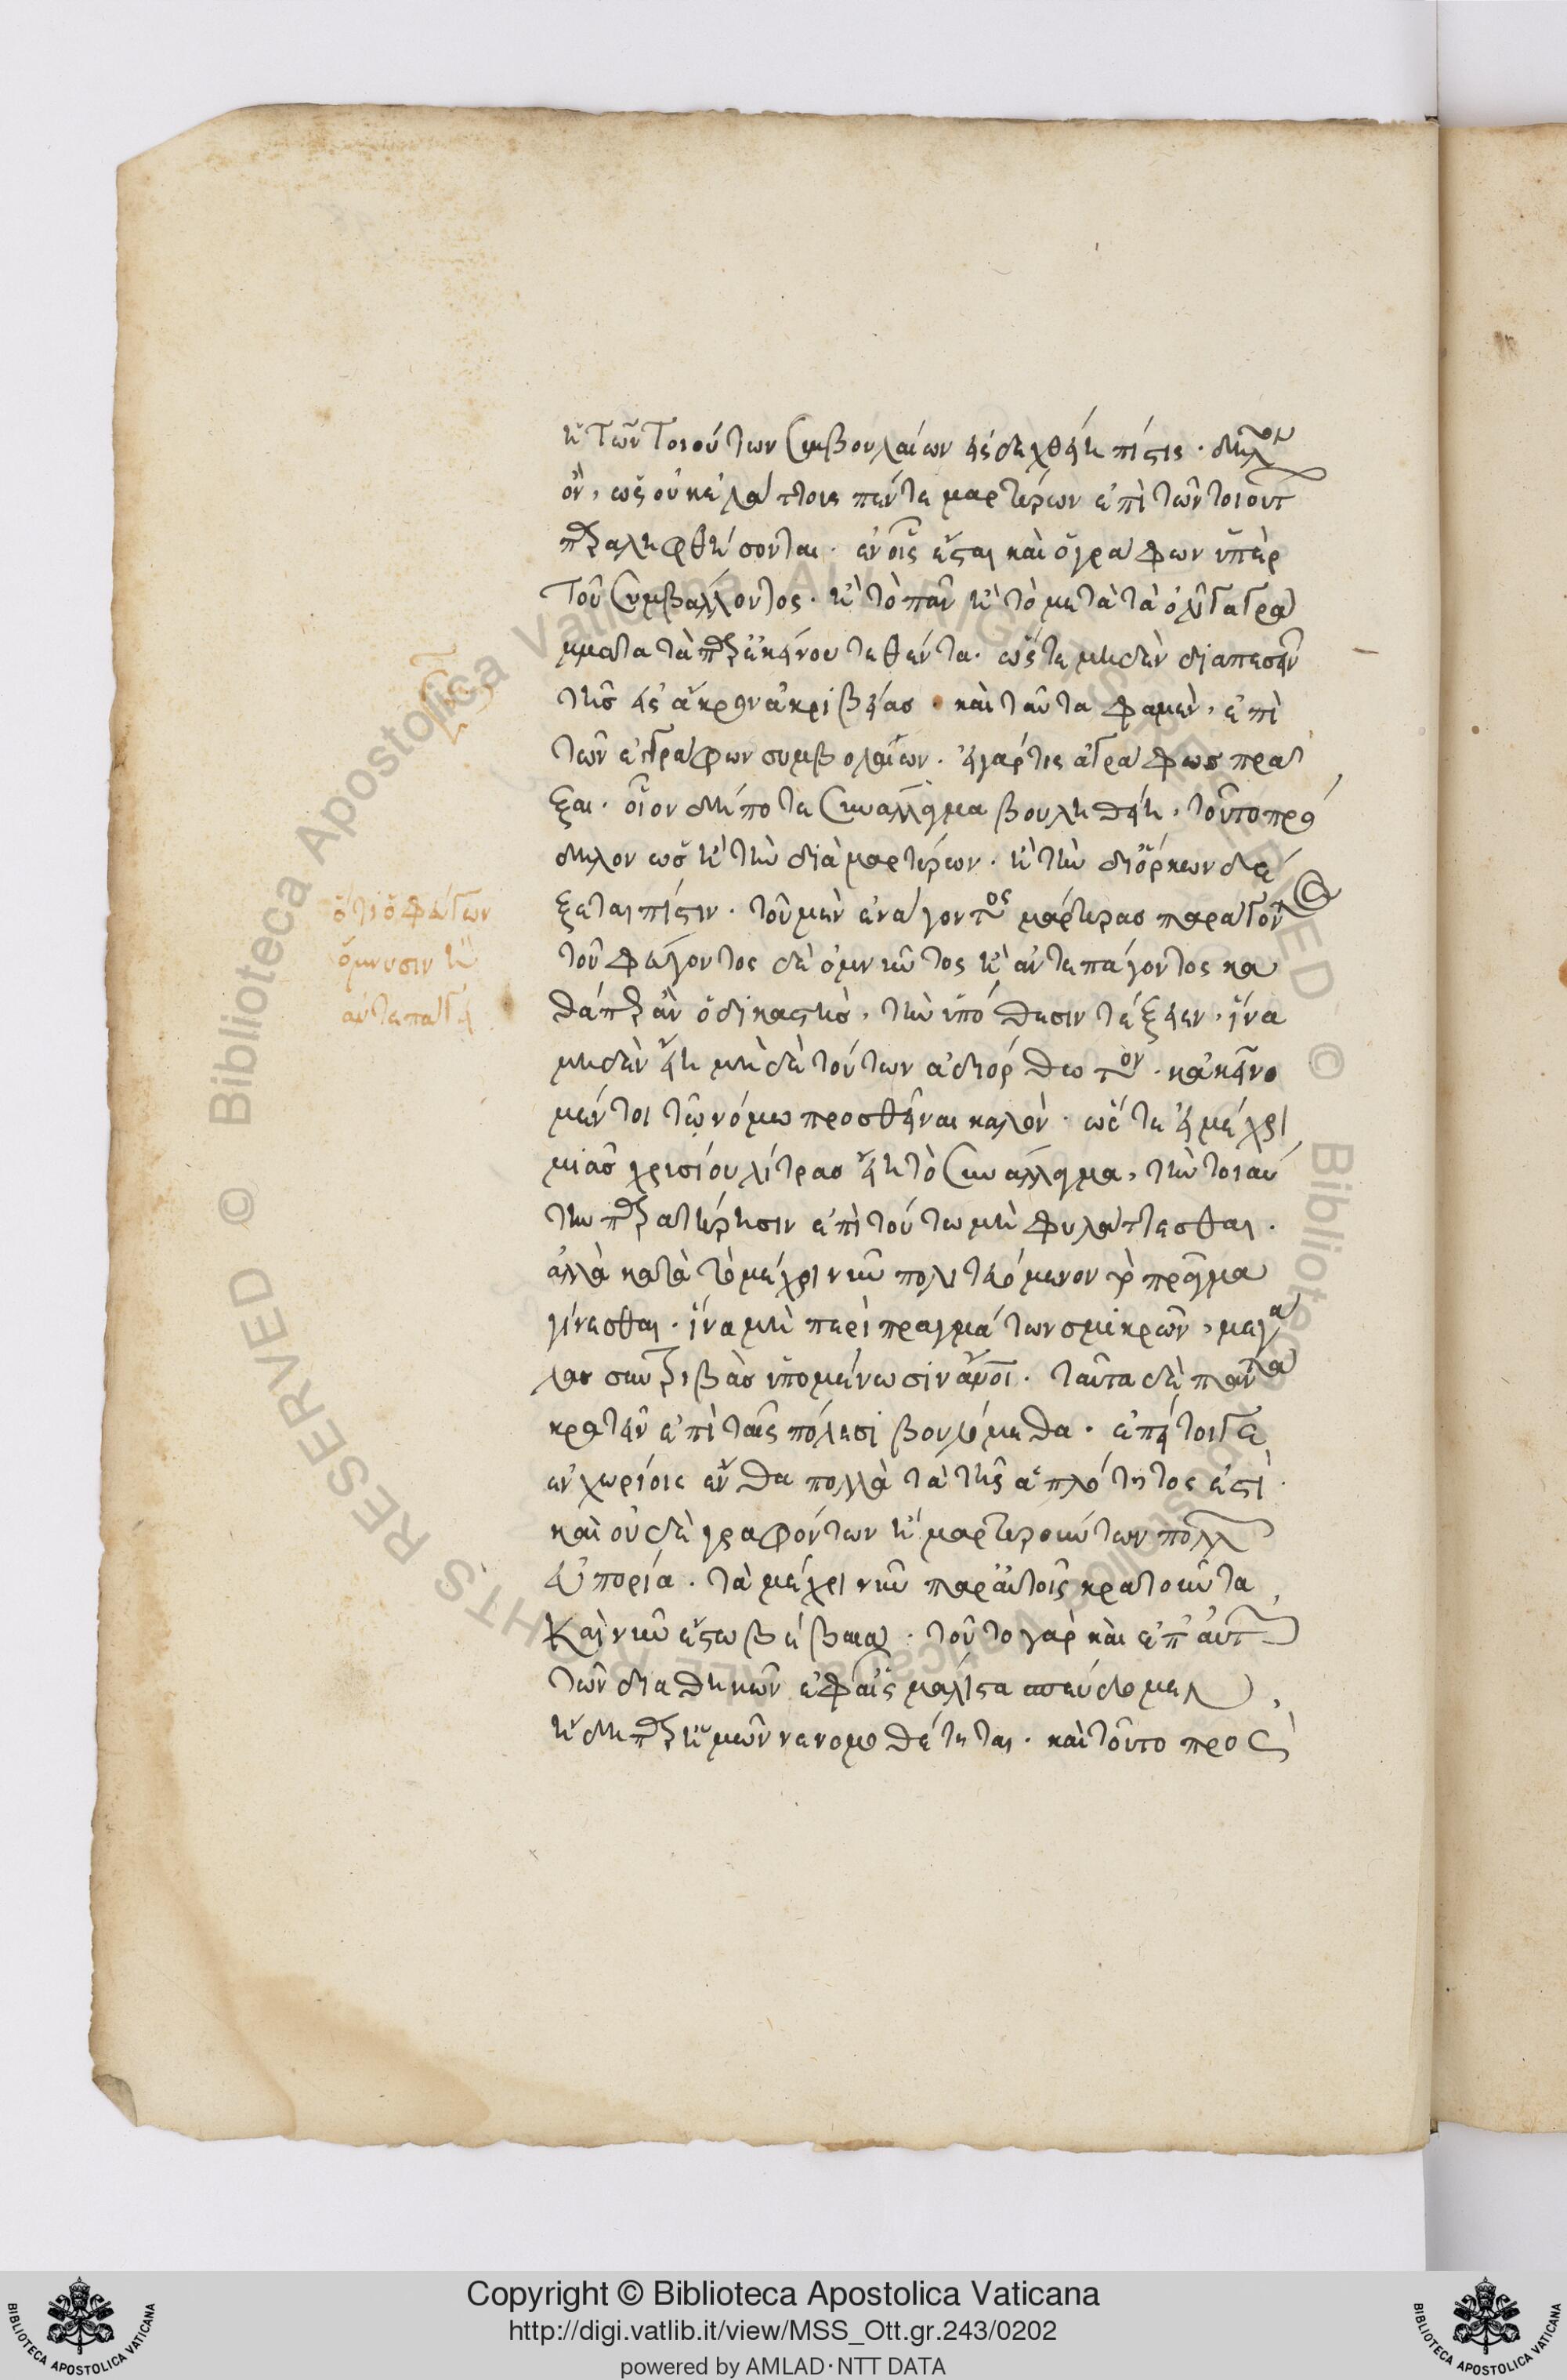 ἡ τῶν τοιούτων συμβουλαίων εἰσδεχθείη πίστις. δῆλον
ὂν, ὡς οὐκ ἐλάττους πέντε μαρτύρων ἐπὶ τῶν τοιούτ
παραληφθήσονται. ἐν οἷς ἔσται καὶ ὁ γράφων ὑπὲρ
τοῦ συμβάλλοντος. ἢ τὸ πᾶν ἢ τὸ μετὰ τὰ ὀλίγα γρά
μματα τὰ παρ' ἐκείνου τεθέντα. ὥστε μηδὲν διαπεσεῖν
τῆς εἰς ἄκρον ἀκριβείας. καὶ ταῦτα φαμὲν, ἐπὶ
τῶν ἐγγράφων συμβολαίων. εἰ γάρ τις ἀγράφως πρᾶ
ξαι. οἷον δήποτε συνάλλαγμα βουληθείη, τοῦτο πρό
δηλον ὡς ἢ τὴν διὰ μαρτύρων. ἢ τὴν δι' ὅρκων δέ
ξεται πίστιν. τοῦ μὲν ἐνάγοντος μάρτυρας παράγοντ
τοῦ φεύγοντος δὲ ὀμνῦντος ἢ ἀντεπάγοντος κα
θάπερ ἂν ὁ δικαστὴς, τὴν ὑπόθεσιν τάξειεν. ἵνα
μηδὲν εἴη μὴ δὲ τούτων ἀδιόρθωτον. κἀκεῖνο
μέντοι τῷ νόμῳ προσθεῖναι καλὸν. ὥστε εἰ μέχρι
μιᾶς χρυσίου λίτρας εἴη τὸ συνάλλαγμα, τὴν τοιαύ
την παρατήρησιν ἐπὶ τούτω μὴ φυλάττεσθαι.
ἀλλὰ κατὰ τὸ μέχρι νῦν πολιτευόμενον τὸ πρᾶγμα
γίνεσθαι. ἵνα μὴ περὶ πραγμάτων σμικρῶν, μεγά
λας συντριβὰς ὑπομένωσιν ἄνοι. ταῦτα δὲ πάντα
κρατεῖν ἐπὶ ταῖς πόλεσι βουλόμεθα. ἐπεί τοι γε
ἐν χωρίοις ἔνθα πολλὰ τὰ τῆς ἁπλότητος ἐστὶ.
καὶ οὐδὲ γραφόντων ἢ μαρτυρούντων πολλ
εὐπορία. τὰ μέχρι νῦν παρ' αὐτοῖς κρατοῦντα
Καὶ νῦν ἔστω βέβαια. τοῦτο γὰρ καὶ ἐπ' αὐτ
τῶν διαθηκῶν ἐφ' αἷς μάλιστα σπεύδομεν,
ἤδη παρ' ἡμῶν νενομοθέτηται. καὶ τοῦτο προς
ὅτι ὁ φεύγων
ὄμνυσιν ἢ
ἀντεπάγει
Copyright © Biblioteca Apostolica Vaticana
http://digi.vatlib.it/view/MSS_Ott.gr.243/0202
powered by AMLAD·NTT DATA
BIBLIOTECA APOSTOLICA VATICANA
BIBLIOTECA APOSTOLICA VATICANA